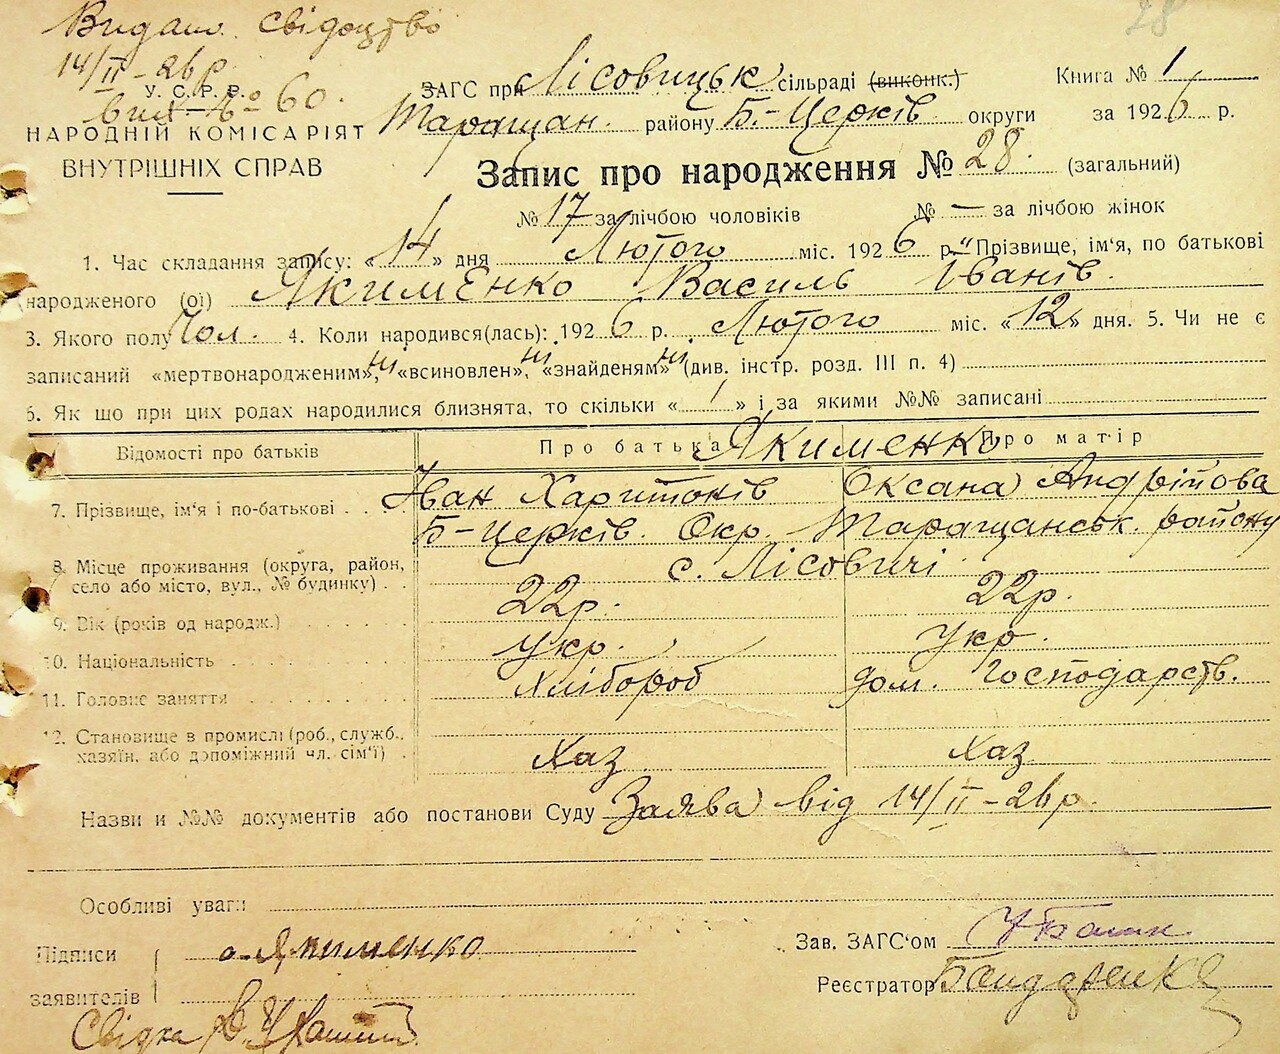 28
Видано Свідоцтво
14/II-26 р.
У. С. Р. Р.
вих. № 60.
НАРОДНІЙ КОМІСАРІЯТ
ВНУТРІШНІХ СПРАВ
ЗАГС при Лісовицьк сільраді (виконк.) Книга № 1
Таращан. району Б.-Церків. округи за 1926 р.
Запис про народження № 28. (загальний)
№ 17 за лічбою чоловіків № — за лічбою жінок
1. Час складання запису: «14» дня Лютого міс. 1926 р. Прізвище, ім'я, по батькові
народженого (ої) Якименко Василь Іванів.
3. Якого полу Чол. 4. Коли народився(лась): 1926 р. Лютого міс. «12» дня. 5. Чи не є
записаний «мертвонародженим», ні «всиновлен», ні «знайденям» ні (див. інстр. розд. III п. 4)
6. Як що при цих родах народилися близнята, то скільки «1» і за якими №№ записані
Відомості про батьків Про батька Про матір
Якименко
7. Прізвище, ім'я і по-батькові . . . Іван Харитонів Оксана Андрійова
Б-Церків. Окр. Таращанськ. району
8. Місце проживання (округа, район, село або місто, вул., № будинку) . с. Лісовичі
9. Вік (років од народж.) . . . . . . 22р. 22р.
10. Національність . . . . . . . . . Укр. Укр.
11. Головне заняття . . . . . . . . Хлібороб дом. Господарств.
12. Становище в промислі (роб., служб., хазяїн, або допоміжний чл. сім'ї) . Хаз Хаз
Назви и №№ документів або постанови Суду Заява від 14/II-26 р.
Особливі уваги
Підписи Якименко
заявителів
Свідка
Зав. ЗАГС'ом
Реєстратор Бондаренко